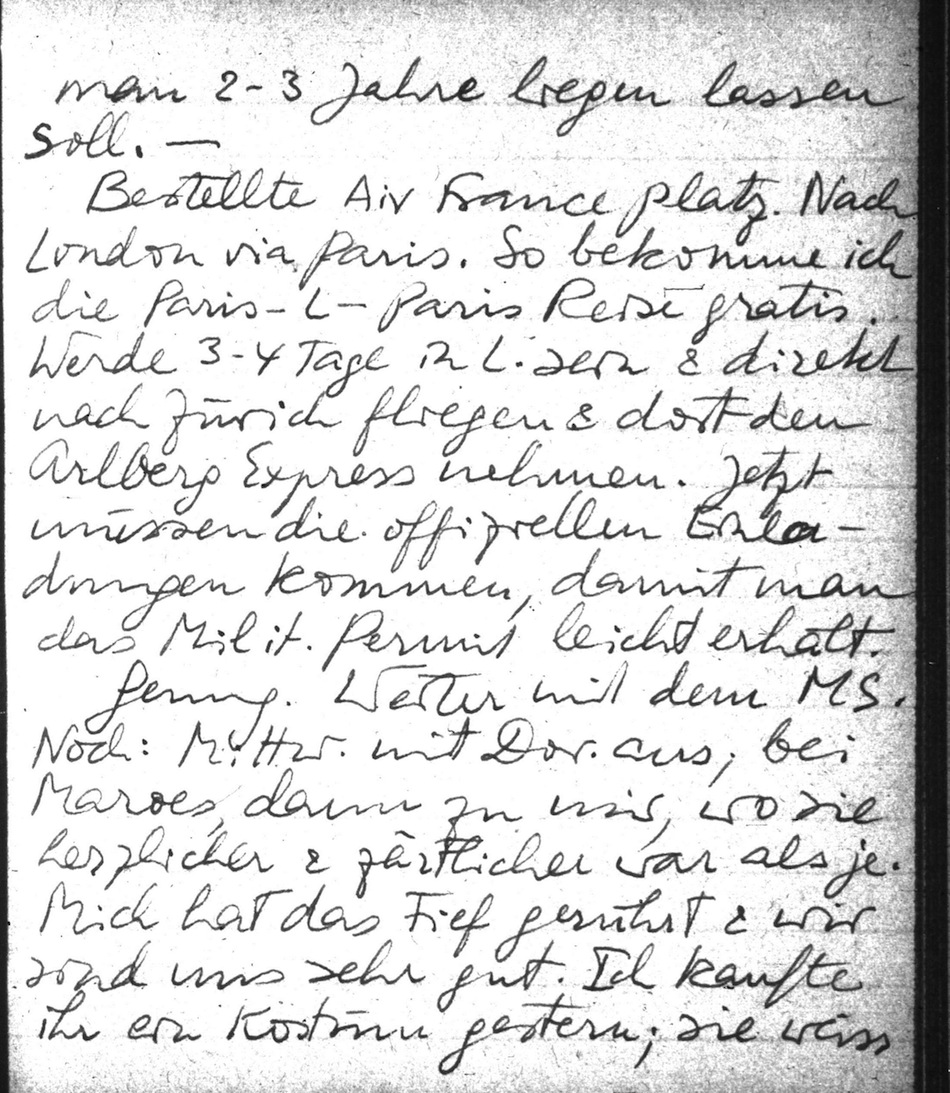 man 2-3 Jahre liegen lassen
soll. —
Bestellte Air France platz. Nach
London via Paris. So bekomme ich
die Paris-L-Paris Reise gratis.
Werde 3-4 Tage in L. sein & direkt
nach Zürich fliegen & dort den
Arlberg Express nehmen. Jetzt
müssen die offiziellen Einla-
dungen kommen, damit man
das Milit. Permit leicht erhält.
Genug. Weiter mit dem MS.
Noch: Mittw. mit Dor. aus; bei
dann zu mir, wo sie
herzlicher & zärtlicher war als je.
Mich hat das tief gerührt & wir
sind uns sehr gut. Ich kaufte
ihr ein Kostüm gestern; sie weiss